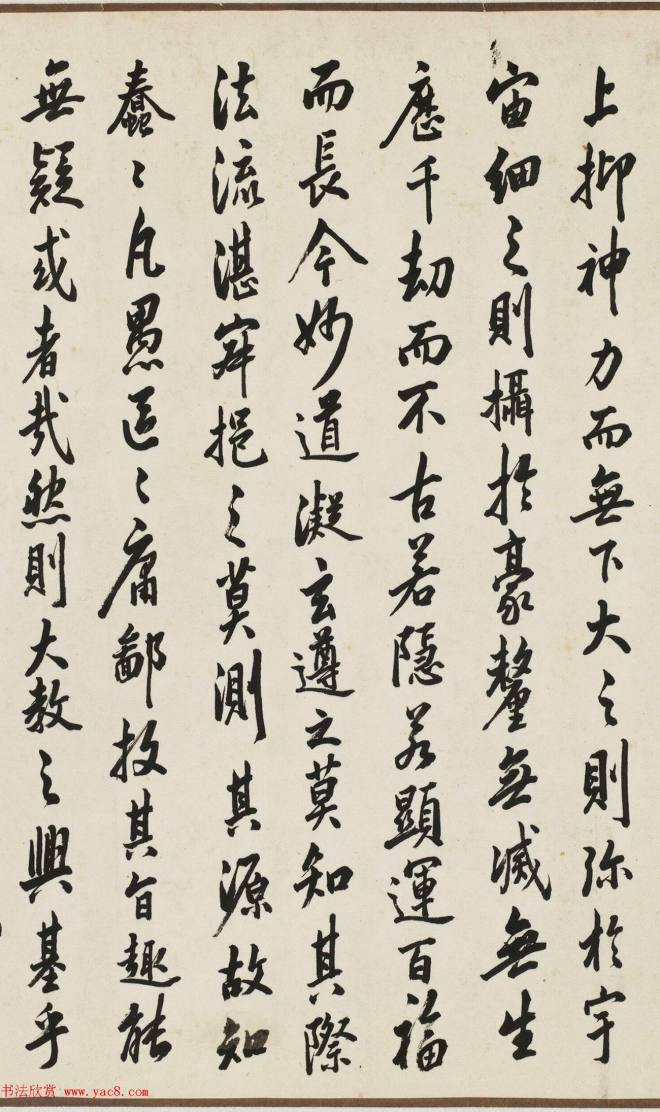 上抑神力而無下大之則弥於宇
宙細之則攝於豪釐無滅無生
歷千劫而不古若隱若顯運百福
而長今妙道凝玄遵之莫知其際
法流湛寂挹之莫測其源故知
蠢〻凡愚區〻庸鄙投其旨趣能
無疑或者哉然則大教之興基乎
书法欣赏 www.yac8.com